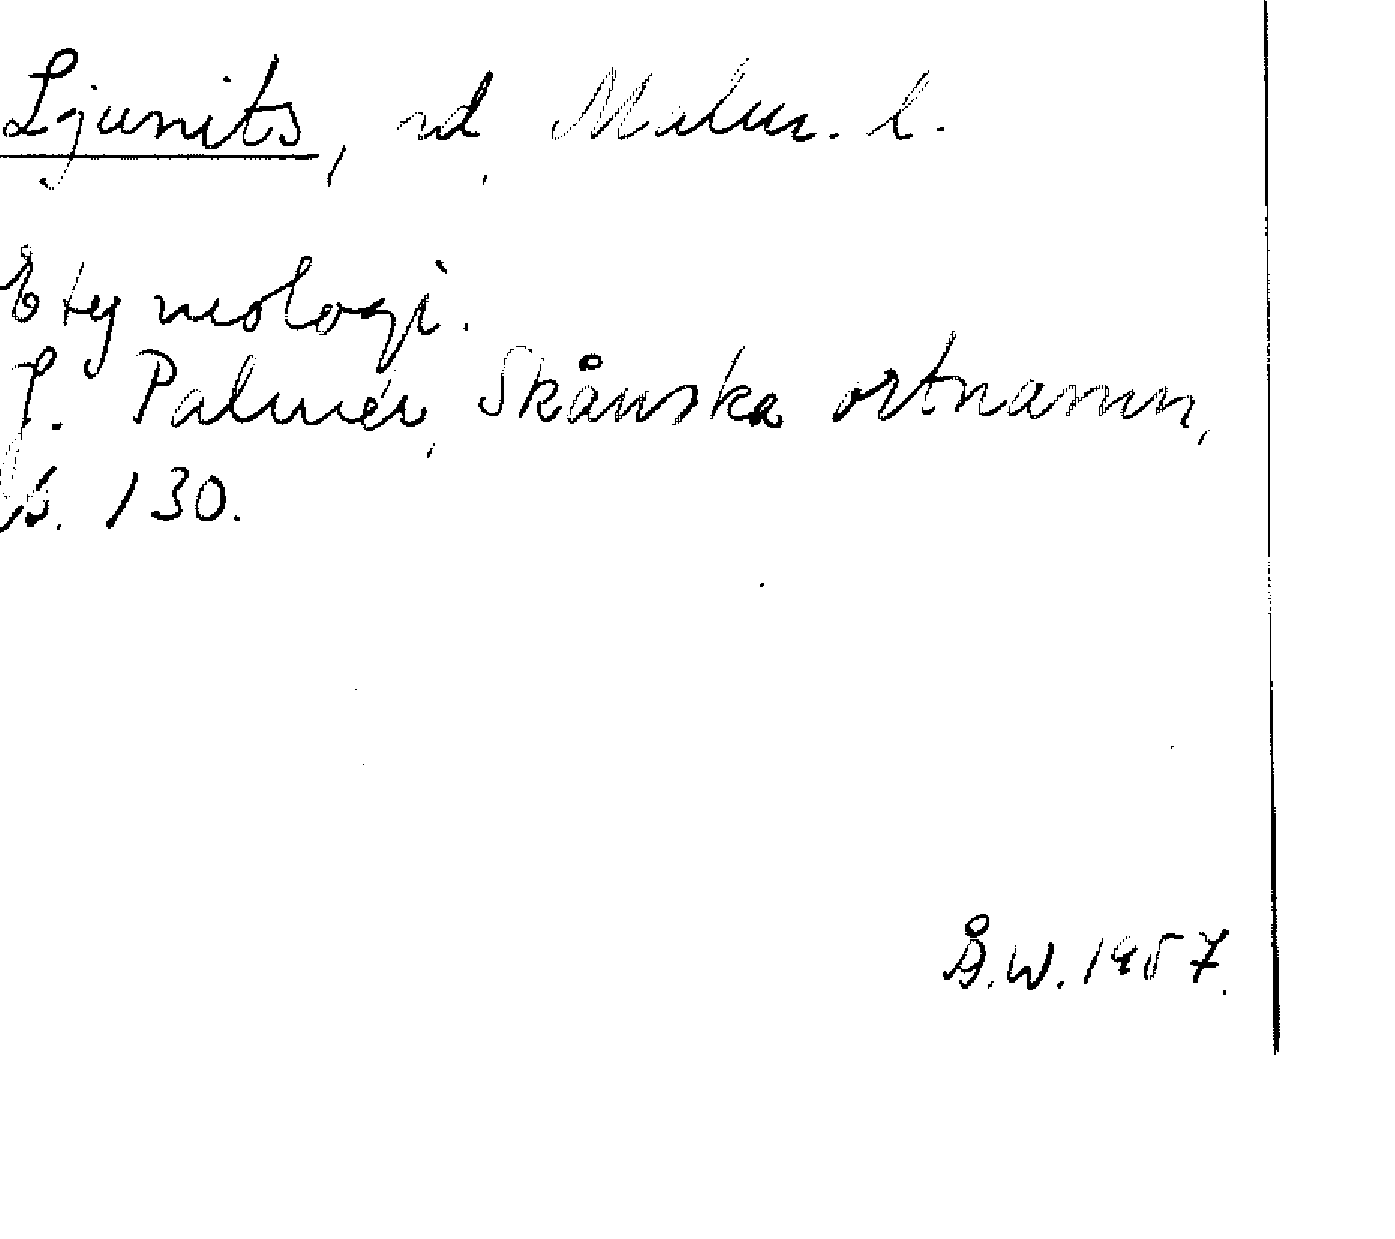 Ljunits, rd, Malm. l.
Etymologi.
J. Palmér, Skånska ortnamn,
s. 130.
Å.W. 1957.